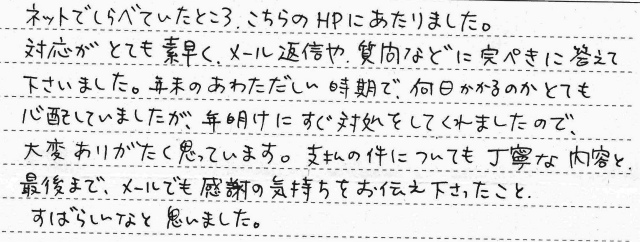 ネットでしらべていたところ、こちらのHPにあたりました。
対応がとても素早く、メール返信や、質問などに完ぺきに答えて
下さいました。年末のあわただしい時期で、何日かかるのかとても
心配していましたが、年明けにすぐ対処をしてくれましたので、
大変ありがたく思っています。支払の件についても丁寧な内容と、
最後まで、メールでも感謝の気持ちをお伝え下さったこと、
すばらしいなと思いました。